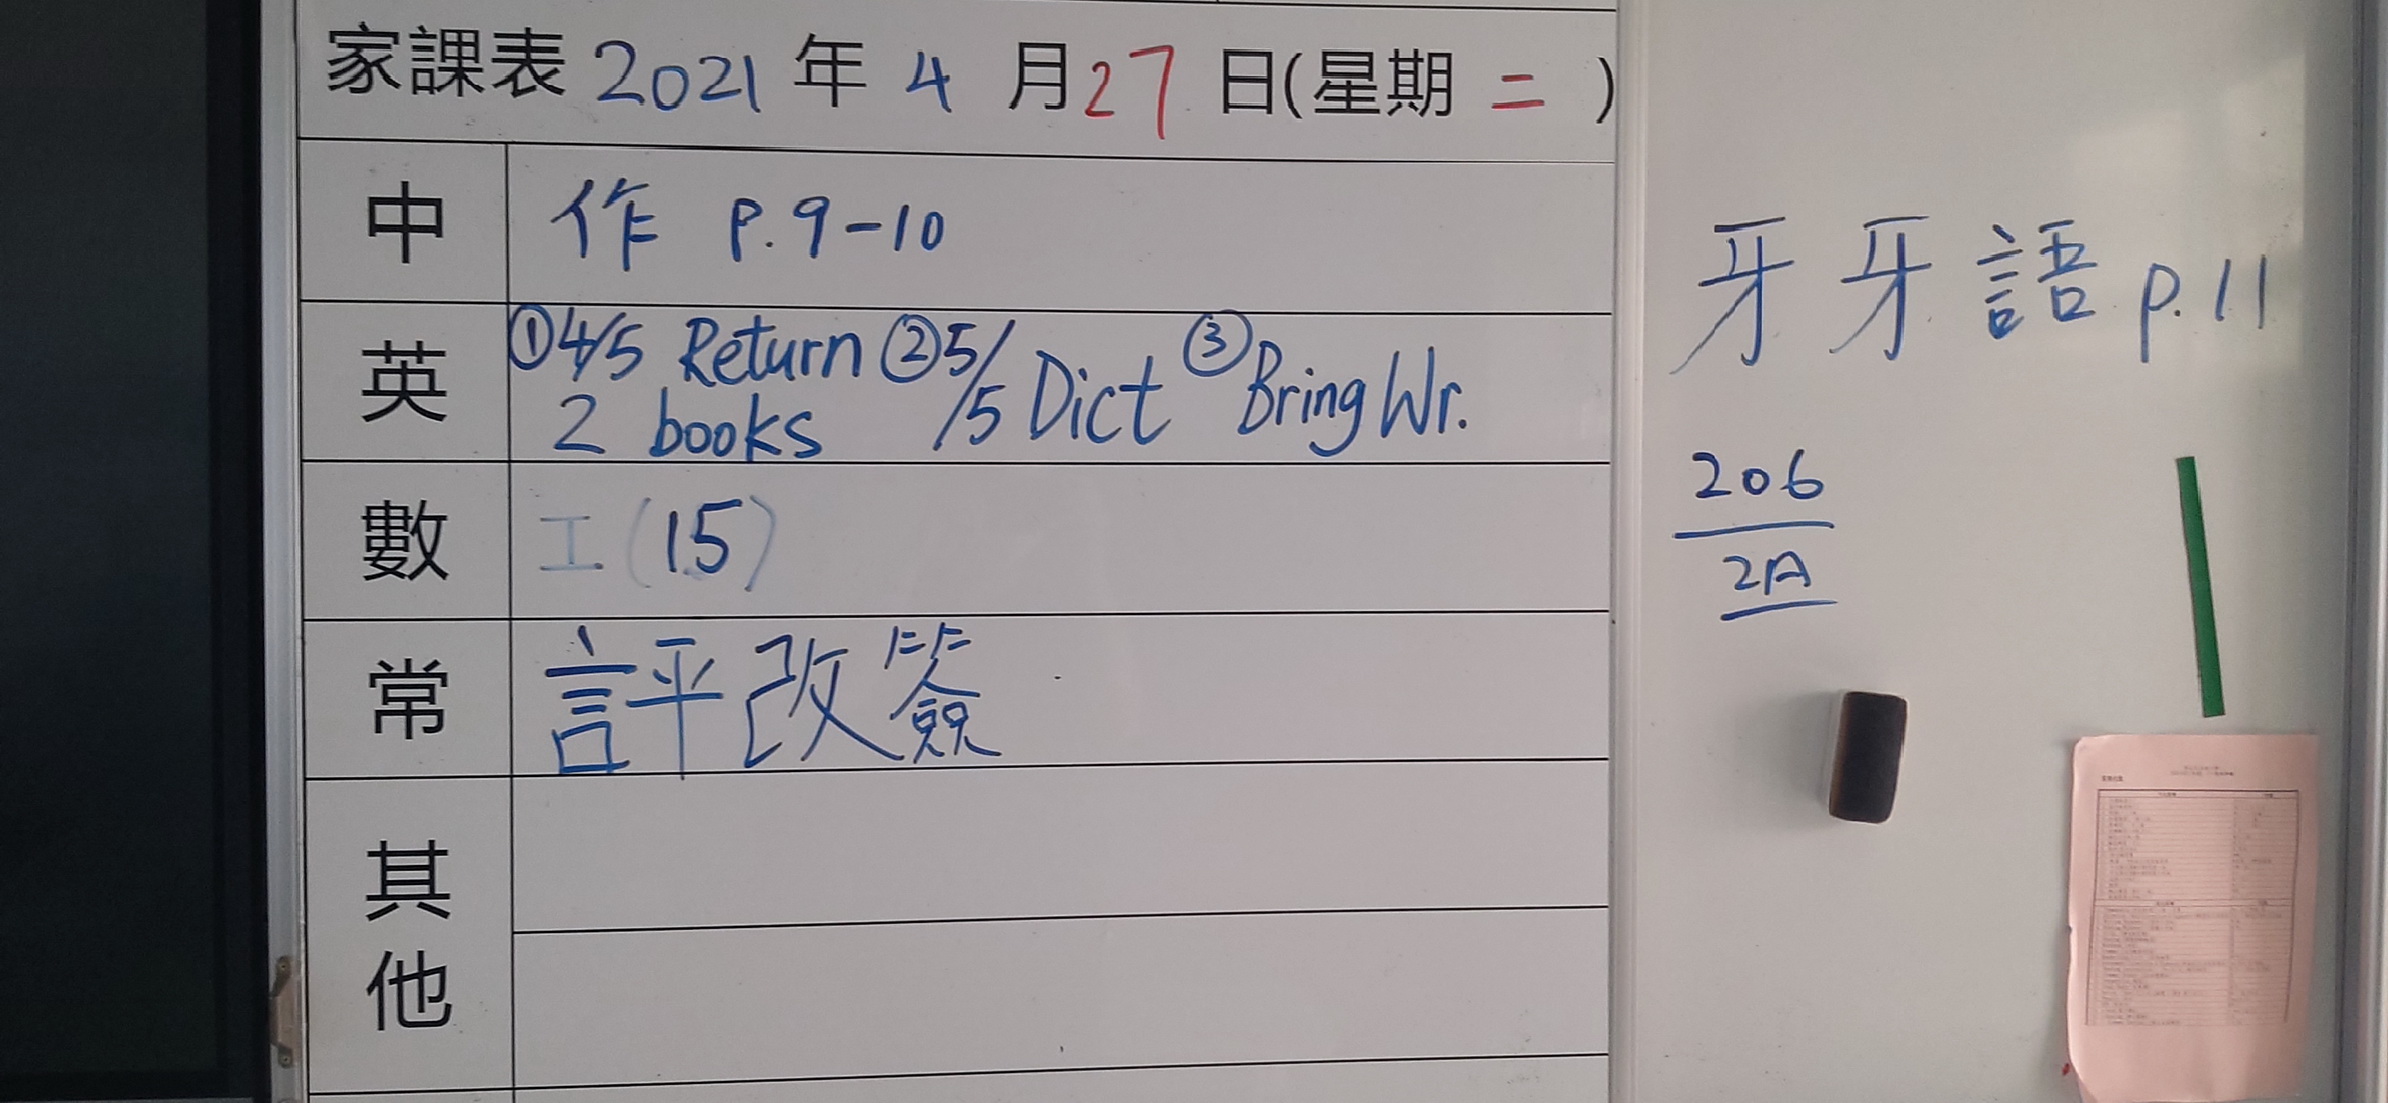 家課表 2021 年 4 月 27 日(星期 二 )
中 作 P.9-10
英 ①4/5 Return 2 books ②5/5 Dict ③Bring Wr.
數 工(15)
常 評改簽
其他
牙牙語 p.11
206
2A